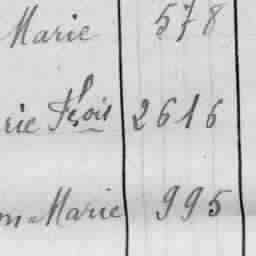 Marie 578
rie Fçois 2616
m-Marie 995